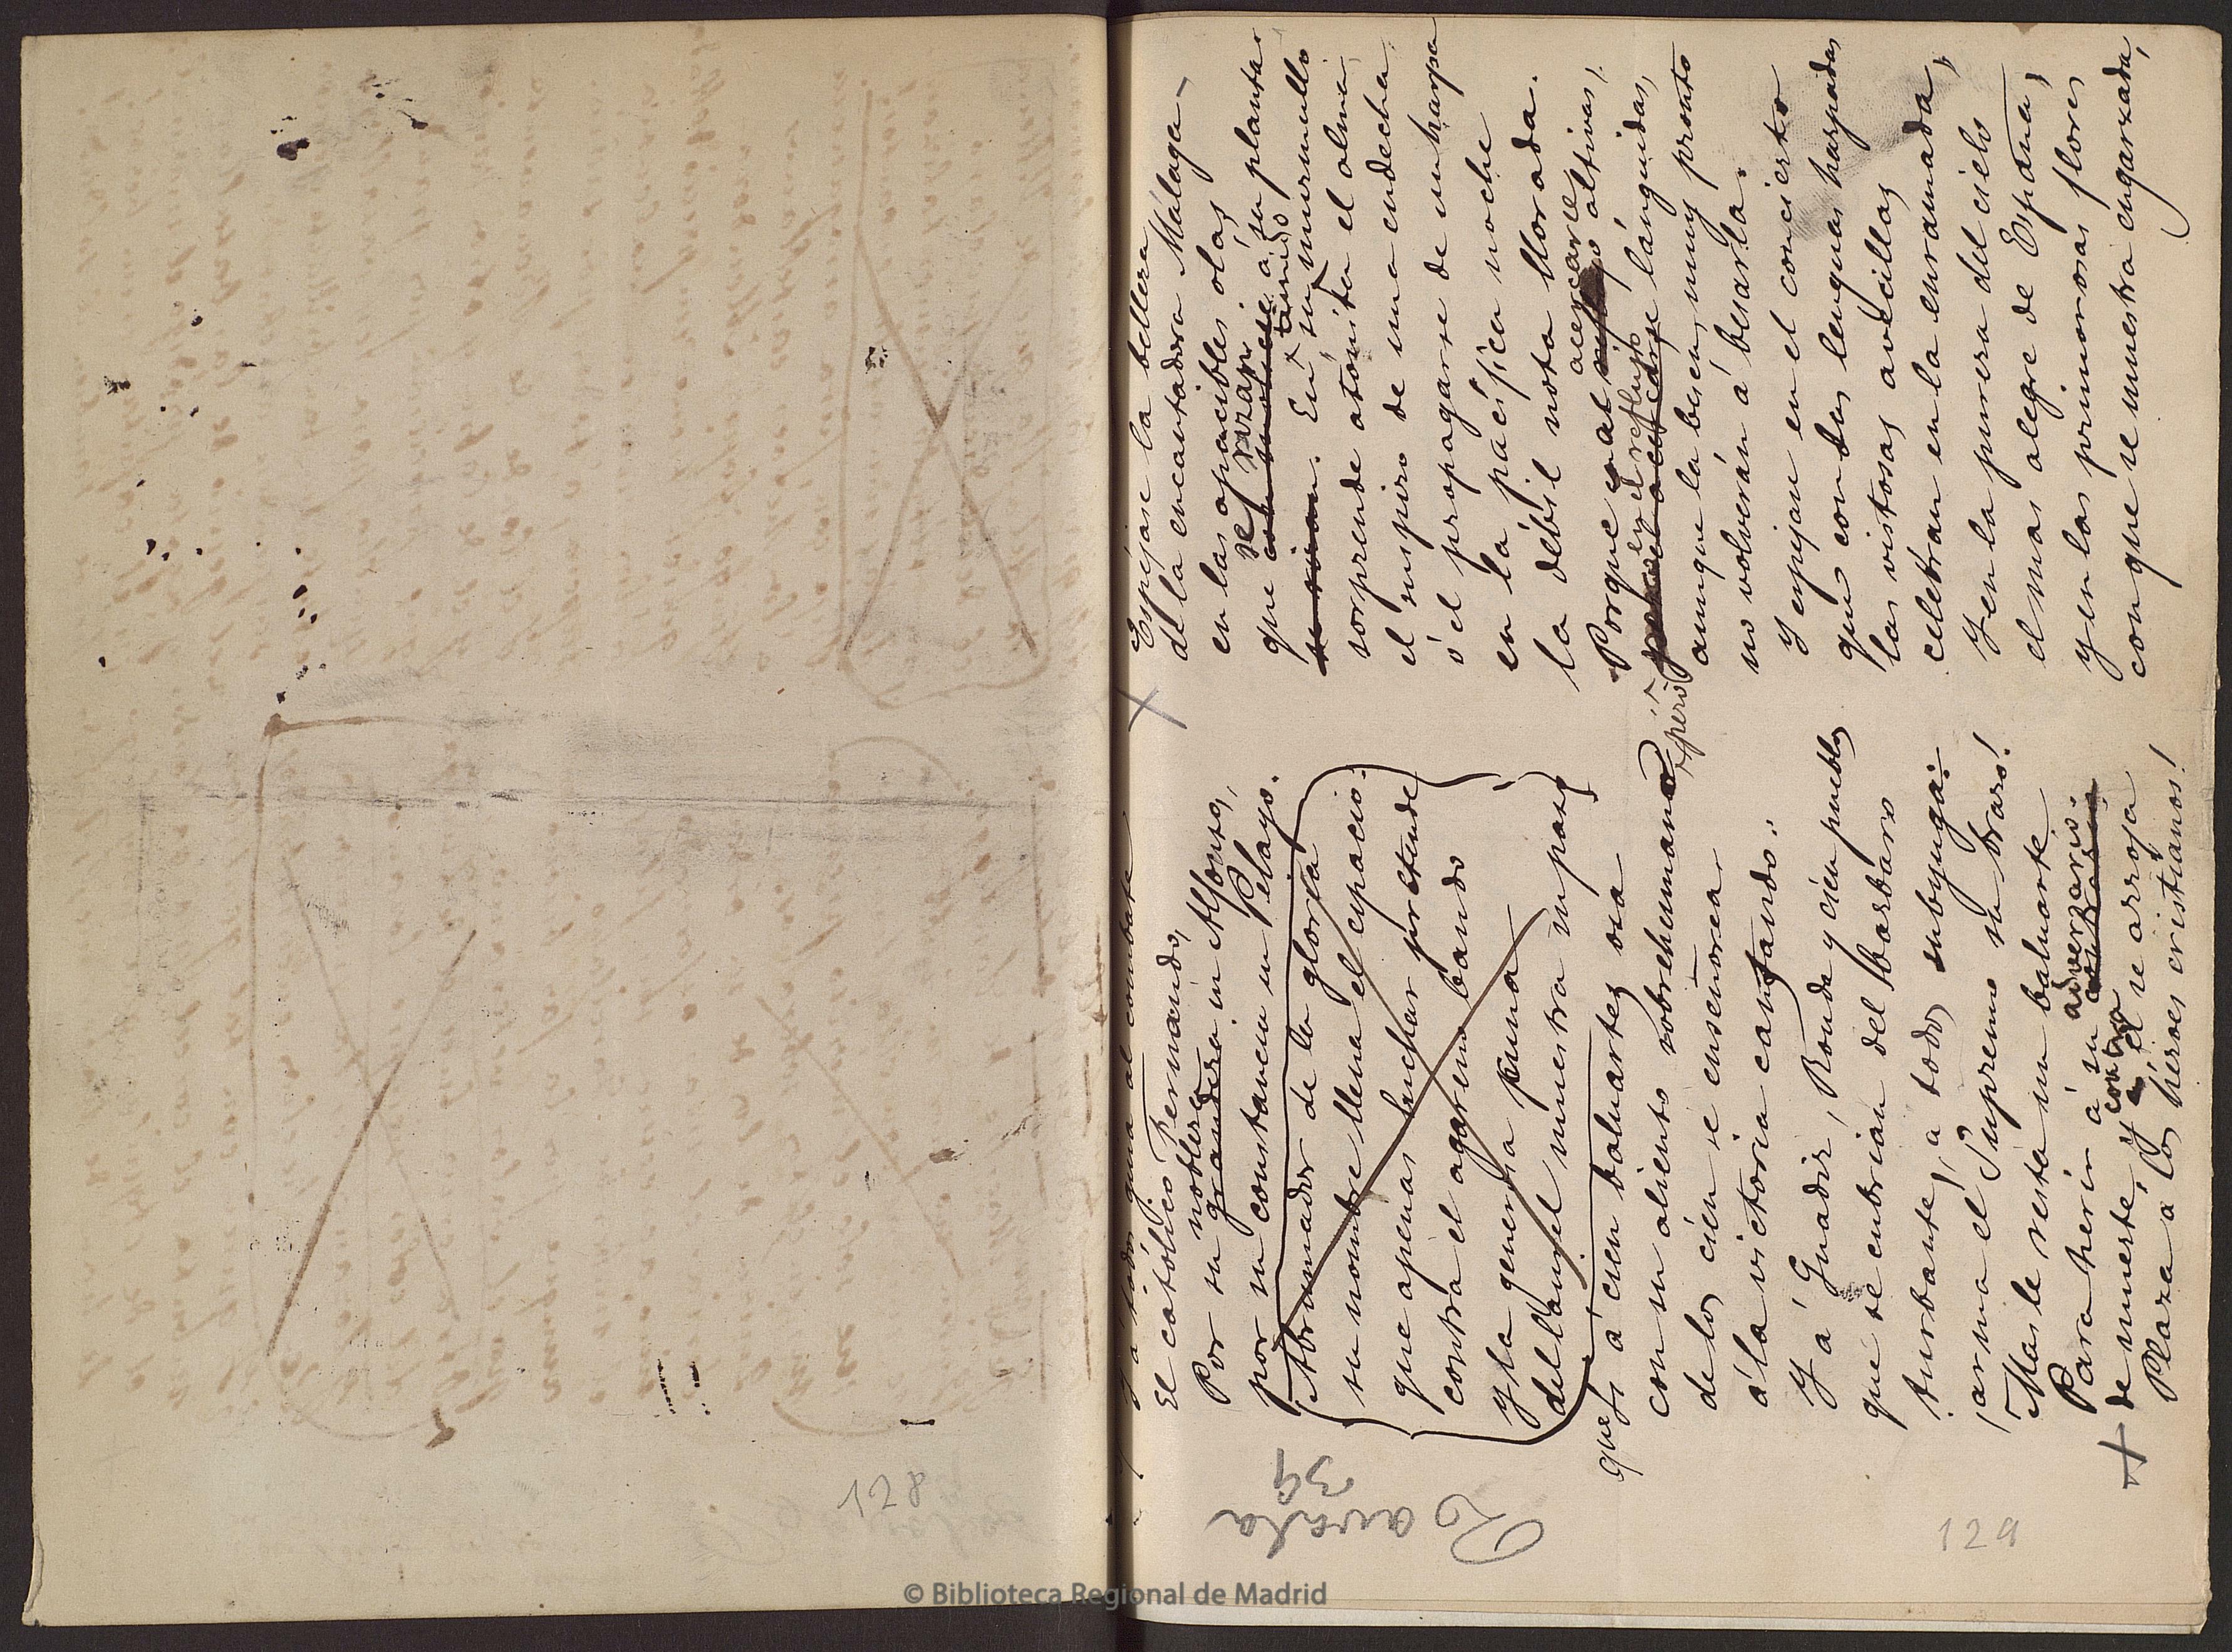 y a todos guia al combate
El católico Fernando,
nobleza
Por su grandeza un Alfonso,
por su constancia un Pelayo.
Abrumador de la gloria
su nombre llena el espacio.
que apenas luchar pretende
contra el agareno bando
y la generosa
del laurel muestra sus pasos
que si á cien baluartes osa
con su aliento sobrehumano
de los cien se enseñorea
á la victoria cantando.
Y á Guadix, Ronda y cien pueblos
que se cubrian del bárbaro
turbante, a todos subyuga:
¡arma el Supremo su brazo!
Mas le resta un baluarte
adversario.
Para herir á su contrario
contra
de muerte, y á él se arroja
Plaza á los héroes cristianos!
Espéjase la belleza
de la encantadora Málaga
en las apacibles olas
se rizan
que con á su planta
tímido
su . En su murmullo
sorprende atónita el alma
el suspiro de una endecha
ó el propagarse de un harpa
en la pacífica noche
la débil nota llorada.
acercarse
Porque al altivas,
pero en el reflujo
acercarse lánguidas,
aunque la besen, muy pronto
no volverán á besarla.
Y espejase en el concierto
que con sus lenguas harpadas
las vistosas avecillas
celebran en la enramada,
Y en la pureza del cielo
el mas alegre de España,
y en las primorosas flores
con que se muestra engarzada,
Zavala
39
128
129
© Biblioteca Regional de Madrid